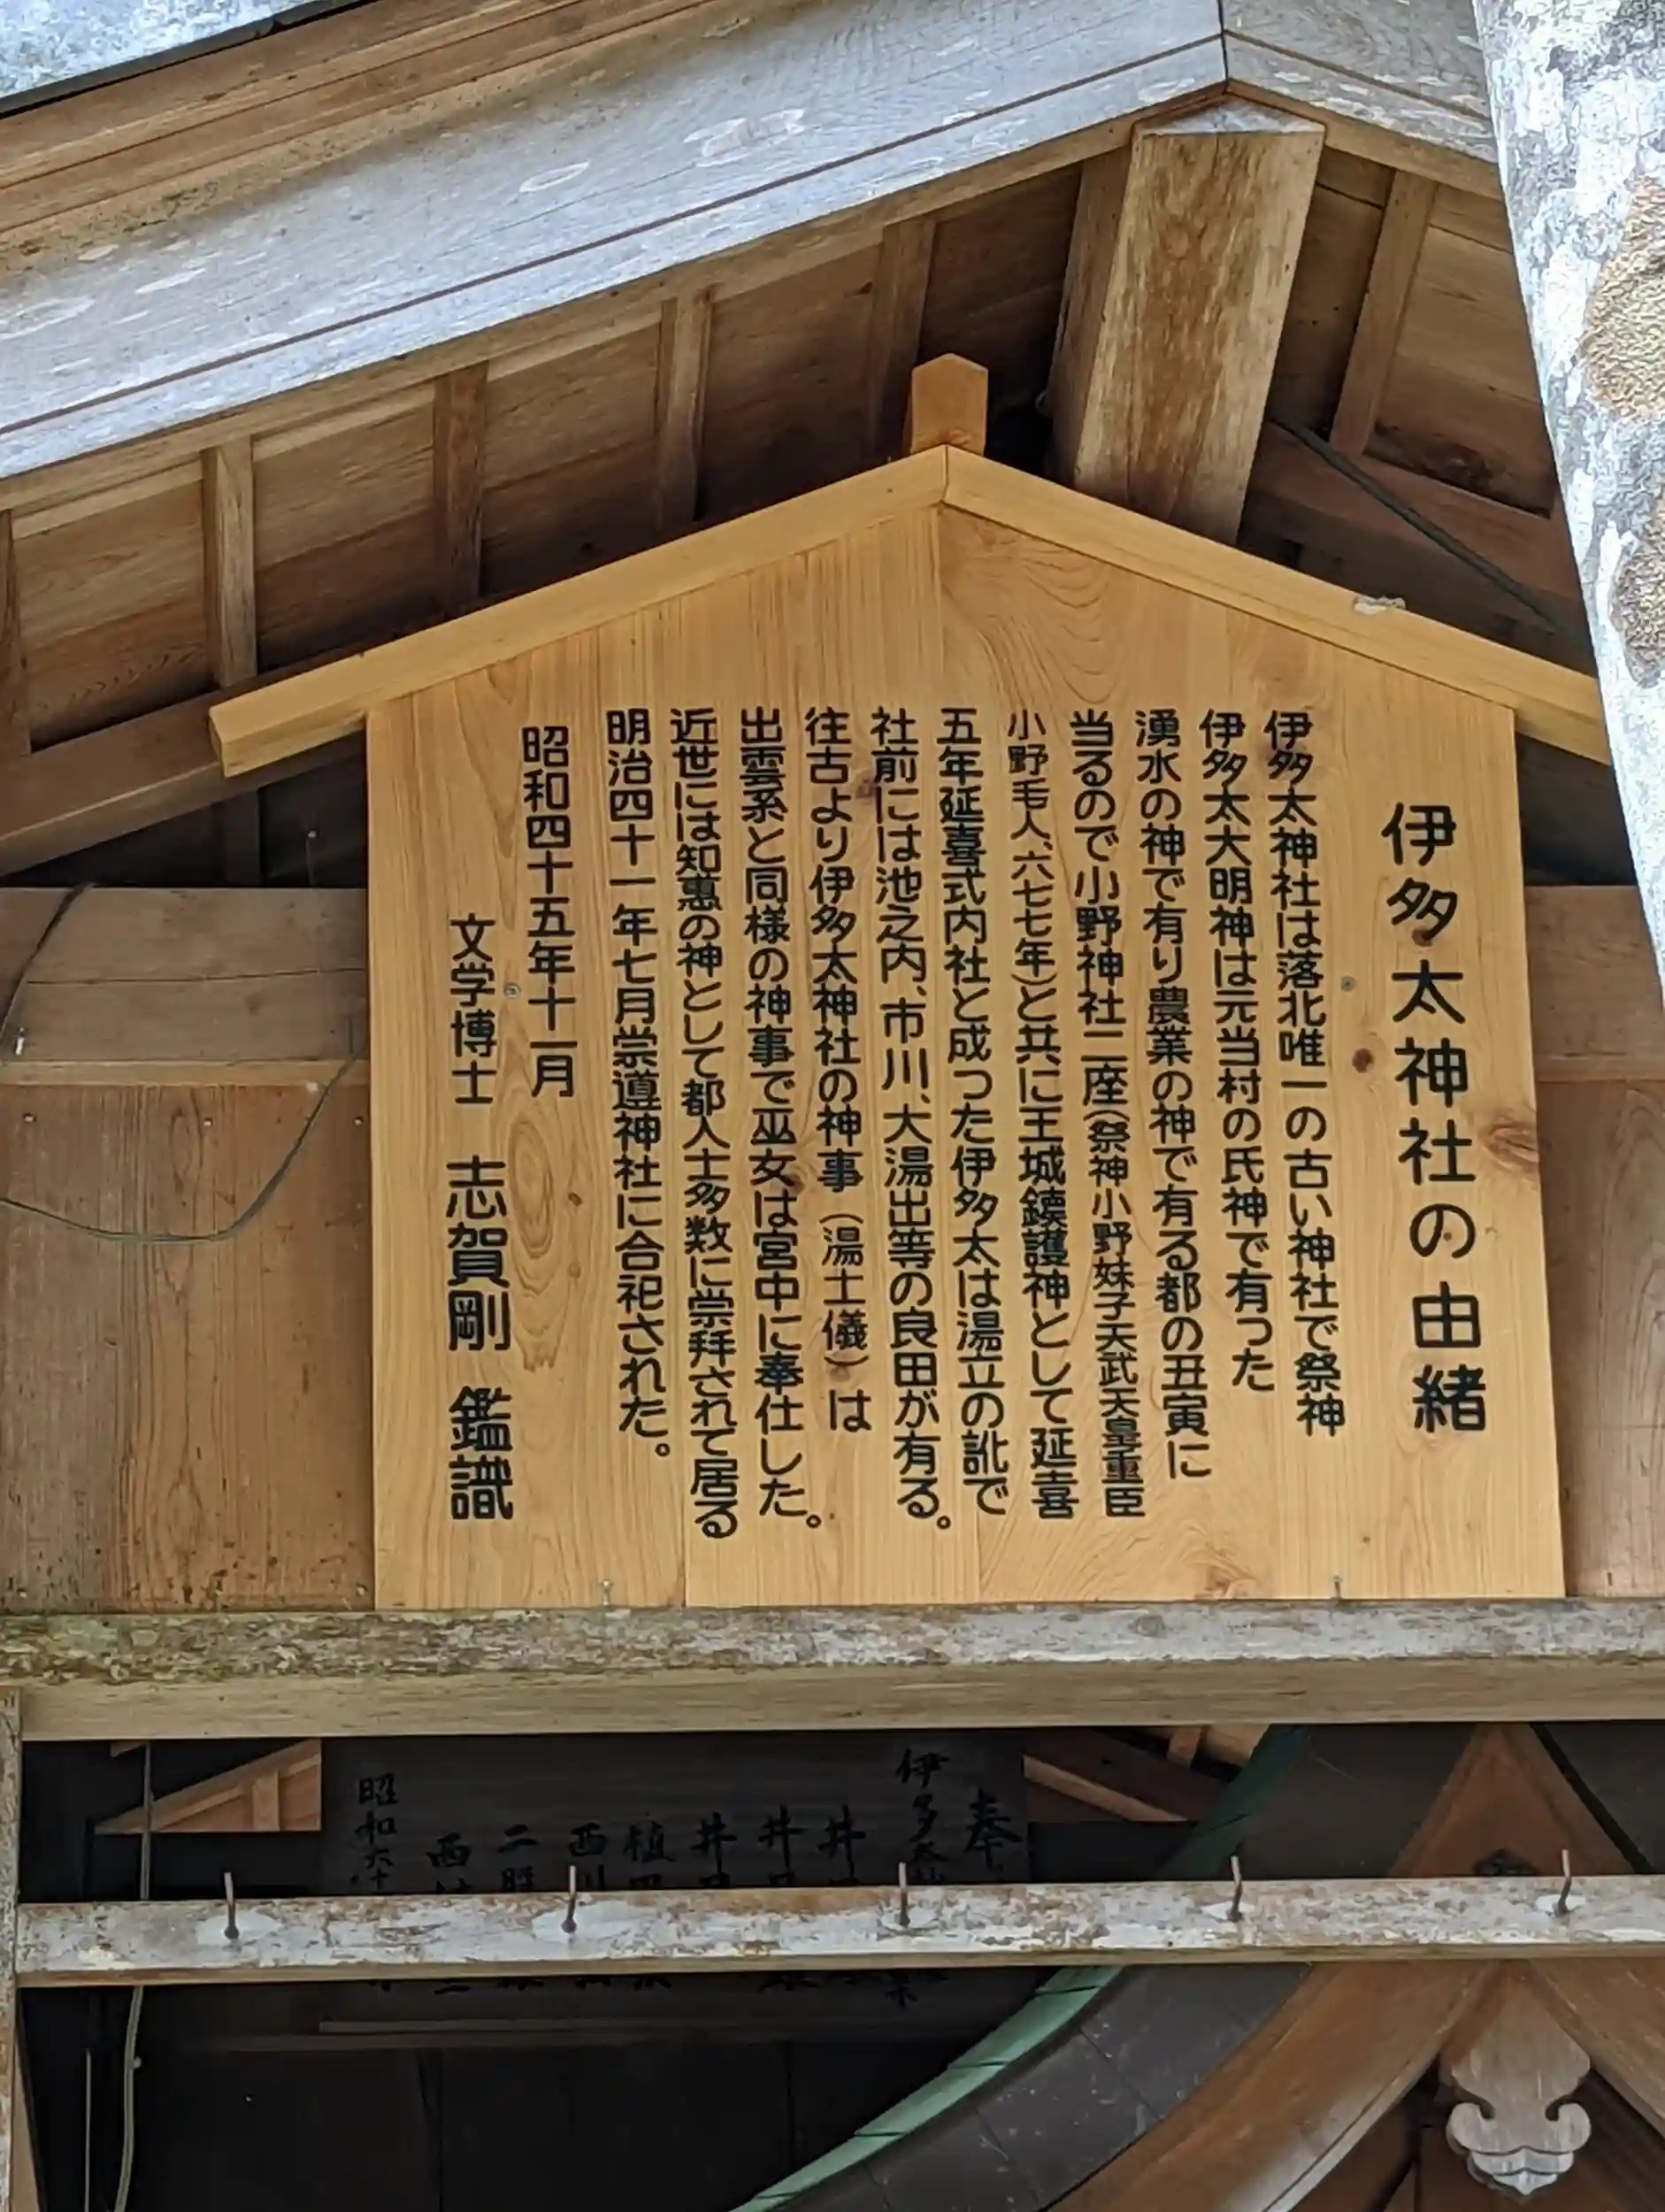 伊多太神社の由緒
伊多太神社は落北唯一の古い神社で祭神
伊多太大明神は元当村の氏神で有った
湧水の神で有り農業の神で有る都の丑寅に
当るので小野神社二座(祭神小野妹子天武天皇重臣
小野毛人、六七七年)と共に王城鎮護神として延喜
五年延喜式内社と成つた伊多太は湯立の訛で
社前には池之内、市川、大湯出等の良田が有る。
往古より伊多太神社の神事(湯土儀)は
出雲系と同様の神事で巫女は宮中に奉仕した。
近世には知惠の神として都人士多数に崇拜されて居る
明治四十一年七月崇道神社に合祀された。
昭和四十五年十一月
文学博士 志賀剛 鑑識
奉
伊多太
井
井
井
植
西川
二
西
昭和六十